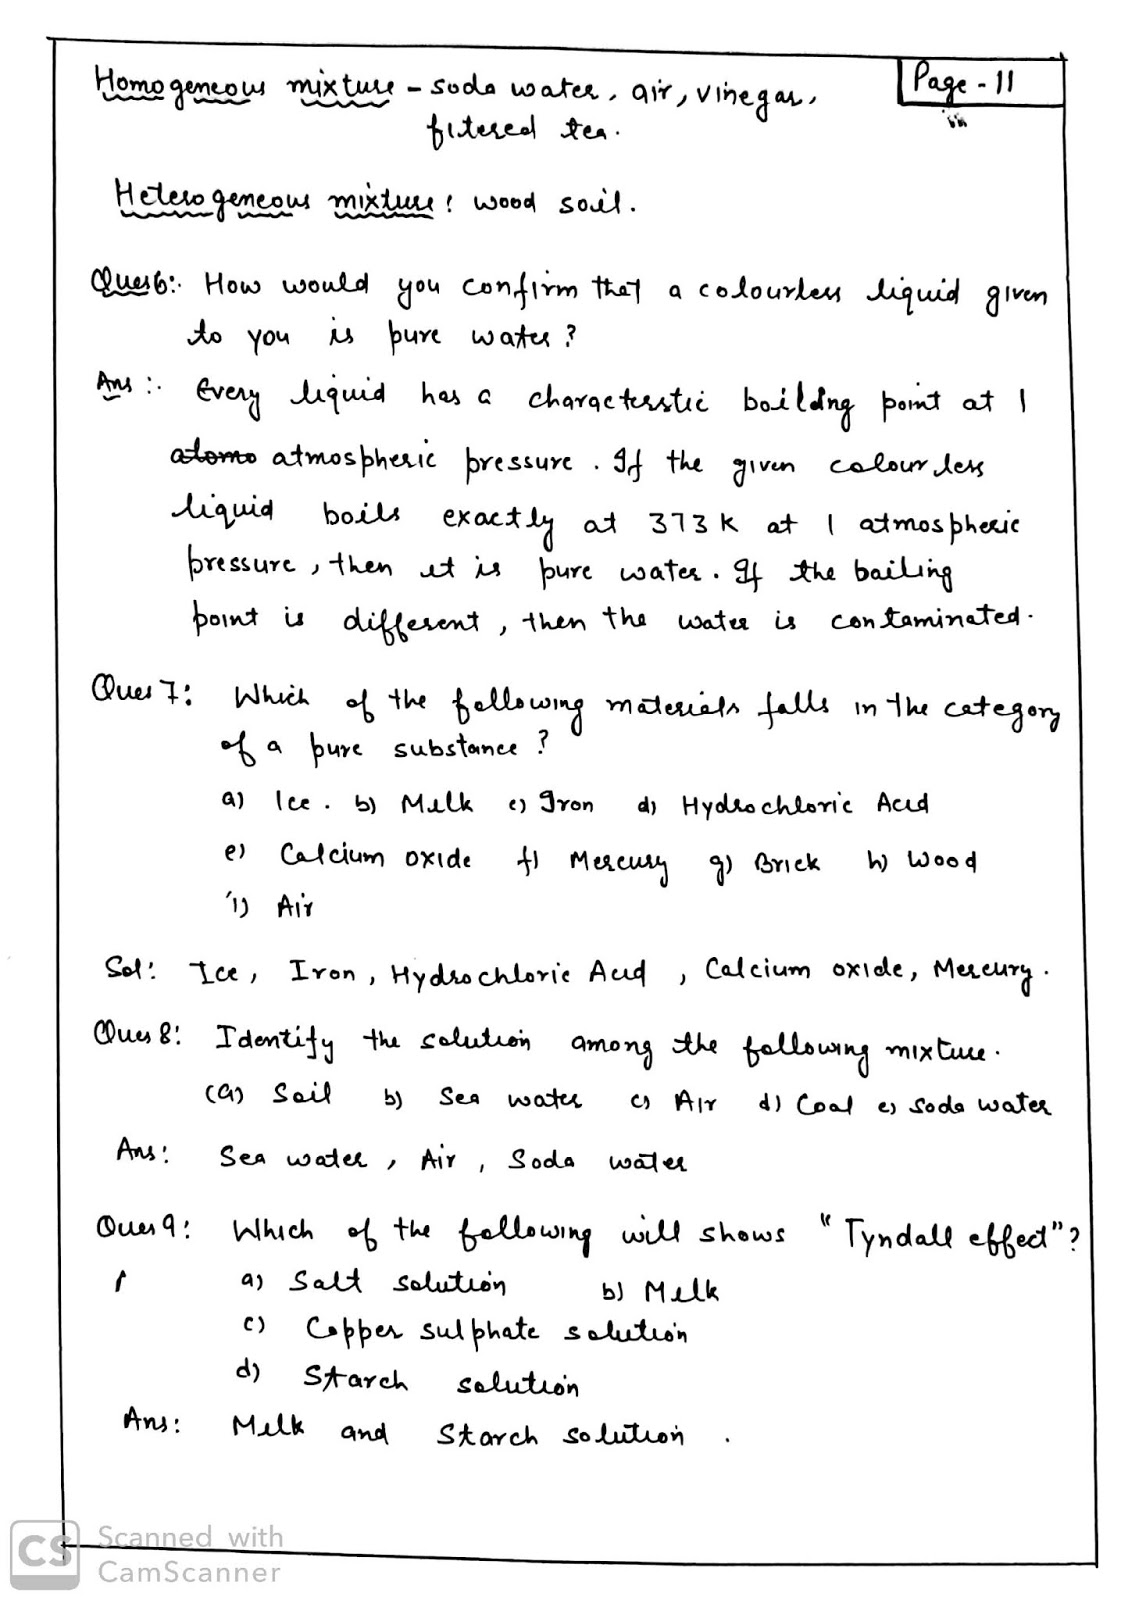 Page - 11
Homogeneous mixture - soda water, air, vinegar,
filtered tea.
Heterogeneous mixture: wood soil.
Ques6:. How would you confirm that a colourless liquid given
to you is pure water?
Ans :. Every liquid has a characterstic boilding point at 1
atomo atmospheric pressure. If the given colourless
liquid boils exactly at 373 K at 1 atmospheric
pressure, then it is pure water. If the boiling
point is different, then the water is contaminated.
Ques 7: Which of the following materials falls in the category
of a pure substance?
a) Ice. b) Milk c) Iron d) Hydrochloric Acid
e) Calcium oxide f) Mercury g) Brick h) Wood
i) Air
Sol: Ice, Iron, Hydrochloric Acid, Calcium oxide, Mercury.
Ques 8: Identify the solution among the following mixture.
(a) Soil b) Sea water c) Air d) Coal e) Soda water
Ans: Sea water, Air, Soda water
Ques 9: Which of the following will shows "Tyndall effect"?
a) Salt solution b) Milk
c) Copper sulphate solution
d) Starch solution
Ans: Milk and Starch solution.
CS Scanned with
CamScanner